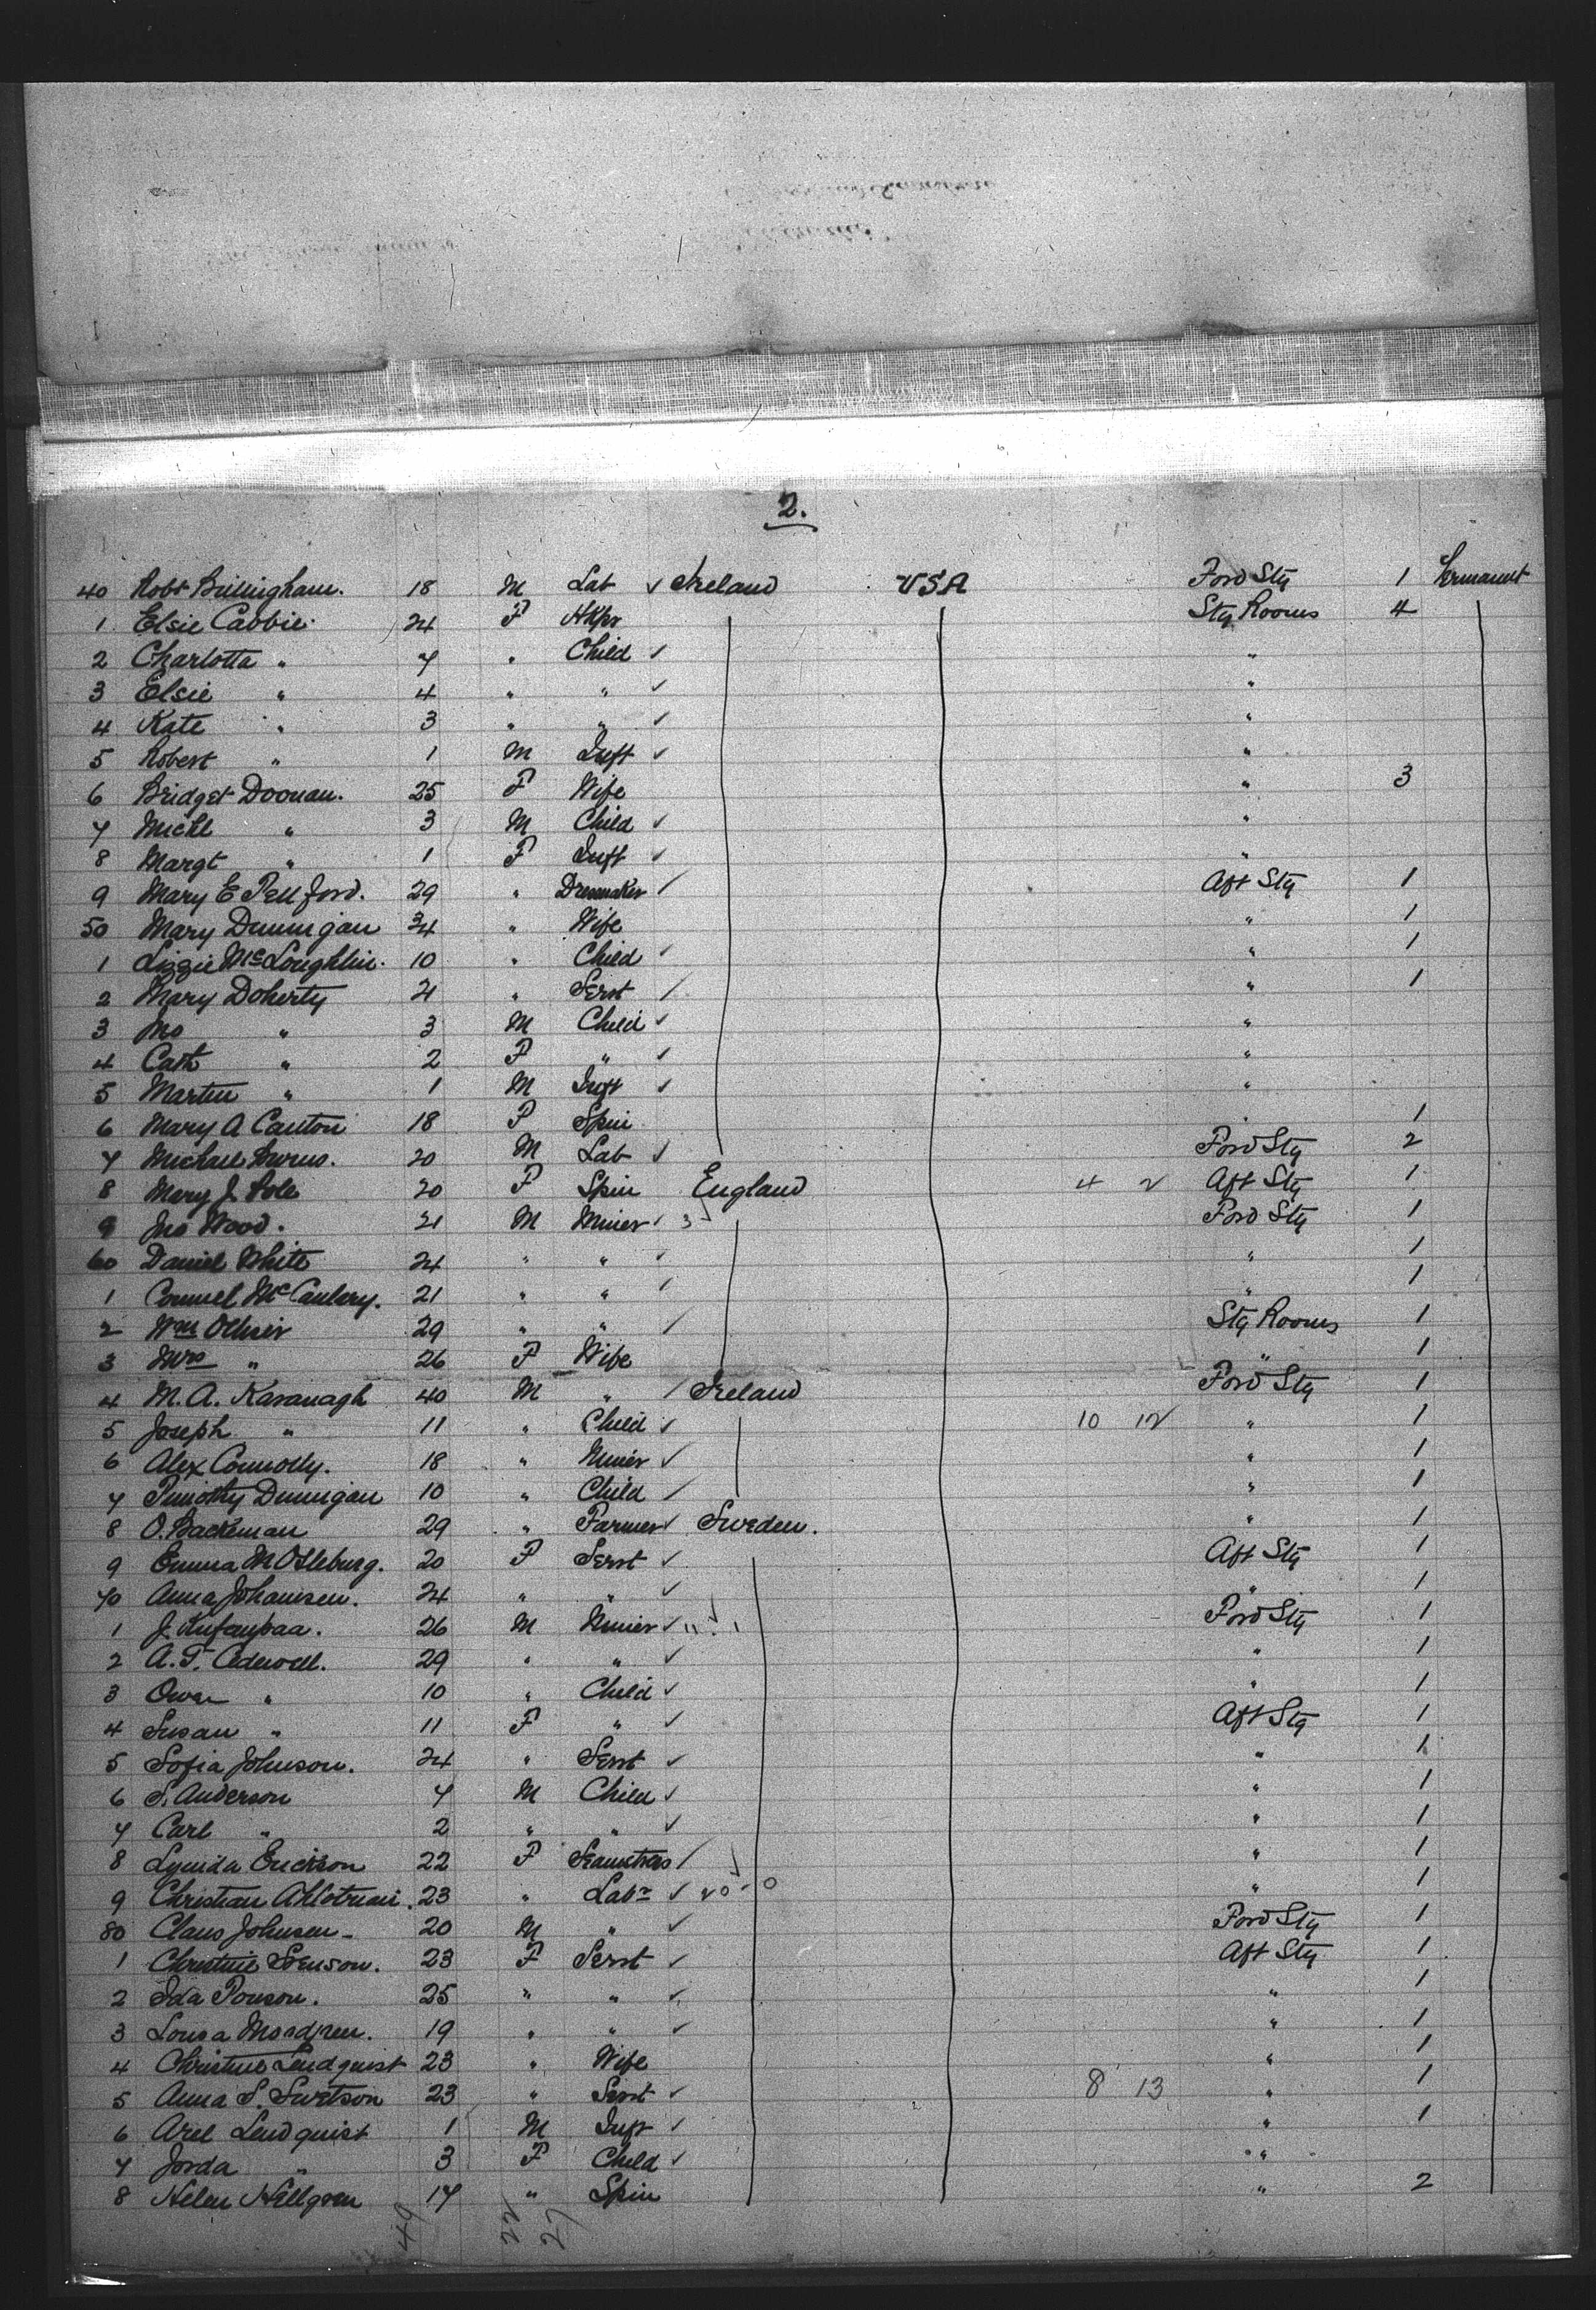 2.
40 Robt Bullingham. 18 M Lab ✓ Ireland USA Ford Stg 1 Permanent
1 Elsie Cabbie. 24 F HKpr Stg Rooms 4
2 Charlotta " 7 " Child ✓ "
3 Elsie " 4 " " ✓ "
4 Kate " 3 " " ✓ "
5 Robert " 1 M Inft ✓ "
6 Bridget Doonan. 25 F Wife " 3
7 Michl " 3 M Child ✓ "
8 Margt " 1 F Inft ✓ "
9 Mary E 29 " Dressmaker / Aft Stg 1
50 Mary Dunnigan 34 " Wife " 1
1 Lizzie McLoughlin. 10 " Child ✓ " 1
2 Mary Doherty 21 " Servt / " 1
3 Jno " 3 M Child ✓ "
4 Cath " 2 F " ✓ "
5 Martin " 1 M Inft ✓ "
6 Mary A Canton 18 F Spin " 1
7 Michael Burns. 20 M Lab ✓ Ford Stg 2
8 Mary J. Pole 20 F Spin England 4 2 Aft Stg 1
9 Jno Wood. 21 M Miner ✓ 3 Ford Stg 1
60 Daniel White 24 " " ✓ " 1
1 21 " " / " 1
2 Wm Olliver 29 " " / Stg Rooms 1
3 Mrs " 26 F Wife " 1
4 M. A. Kavanagh 40 M " / Ireland Ford Stg 1
5 Joseph " 11 " Child ✓ 10 12 " 1
6 Alex Connolly. 18 " Miner ✓ " 1
7 Timothy Dunnigan 10 " Child / " 1
8 O. Backman 29 " Farmer ✓ Sweden. " 1
9 Emma M 20 F Servt ✓ Aft Stg 1
70 Anna Johansen. 24 " " ✓ " 1
1 J. 26 M Miner ✓ 11 1 Ford Stg 1
2 A. F. 29 " " ✓ " 1
3 Owen " 10 " Child ✓ " 1
4 Susan " 11 F " ✓ Aft Stg 1
5 Sofia Johnson. 24 " Servt ✓ " 1
6 S. Anderson 7 M Child ✓ " 1
7 Carl " 2 " " ✓ " 1
8 Lynida Erickson 22 F Seamstress / " 1
9 Christian 23 " Labr ✓ 20-0 " 1
80 Claus Johnsen 20 M " ✓ Ford Stg 1
1 Christine Svenson. 23 F Servt ✓ Aft Stg 1
2 Ida Ponson. 25 " " ✓ " 1
3 Lousa 19 " " ✓ " 1
4 Christine Lindquist 23 " Wife " 1
5 Anna S. Swetson 23 " Servt ✓ 8 13 " 1
6 Axel Lindquist 1 M Inft ✓ " 1
7 Jorda " 3 F Child ✓ "
8 Helen Hellgren 17 " Spin " 2
49 22 27